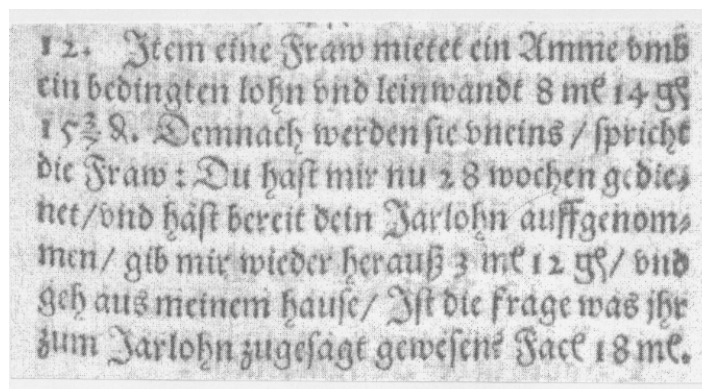 12. Item eine Fraw mietet ein Amme vmb
ein bedingten lohn vnd leinwandt 8 mk 14 gß
15 3/7 ₰. Demnach werden sie vneins / spricht
die Fraw : Du hast mir nu 28 wochen gedie⸗
net/vnd hast bereit dein Jarlohn auffgenom⸗
men/ gib mir wieder herauß 3 mk 12 gß/ vnd
geh aus meinem hause/ Ist die frage was jhr
zum Jarlohn zugesagt gewesen? Facit 18 mk.